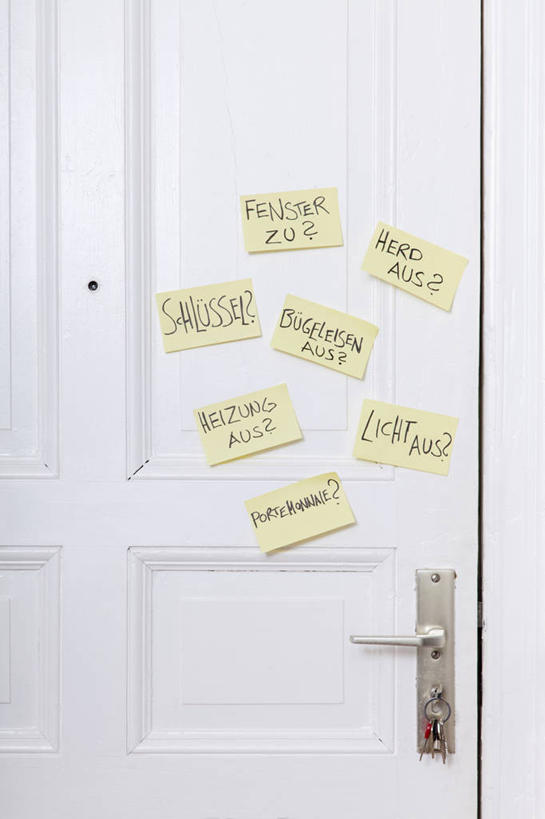 FENSTER
ZU?
HERD
AUS?
SCHLÜSSEL?
BÜGELEISEN
AUS?
HEIZUNG
AUS?
LICHT AUS?
PORTEMONNAIE?